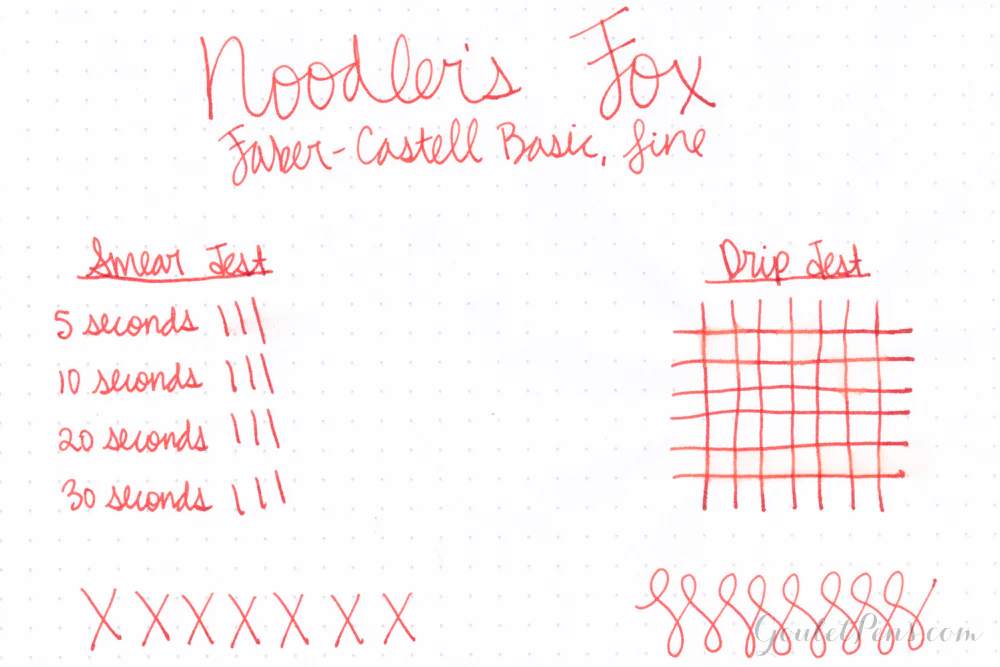 Noodler's Fox
Faber-Castell Basic, fine
Smear Test
5 seconds
10 seconds
20 seconds
30 seconds
Drip Test
X X X X X X X
GouletPens.com